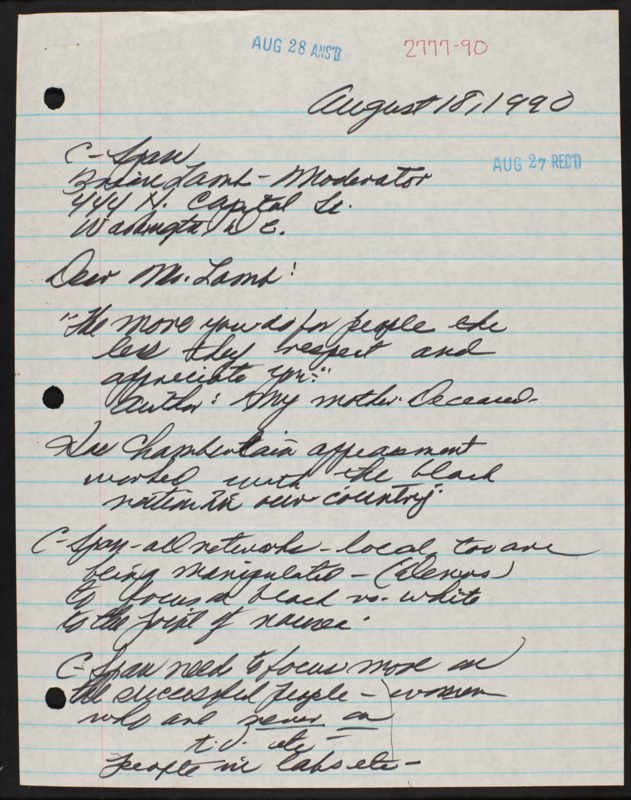 AUG 28 ANS'D
2777-90
August 18, 1990
C-Span
AUG 27 REC'D
Brian Lamb - Moderator
444 N. Capitol St.
Washington D C.
Dear Mr. Lamb:
"The more you do for people the
less they respect and
appreciate you."
Author: My mother. Deceased-
Has Chamberlain appeasment
worked with the black
nation in our country.
C-Span-all networks-local too are
being manipulated-
to focus on black vs. white
to the point of nausea.
C-Span need to focus more on
the successful people - women
who are never on
t.v. etc
people in labs etc-